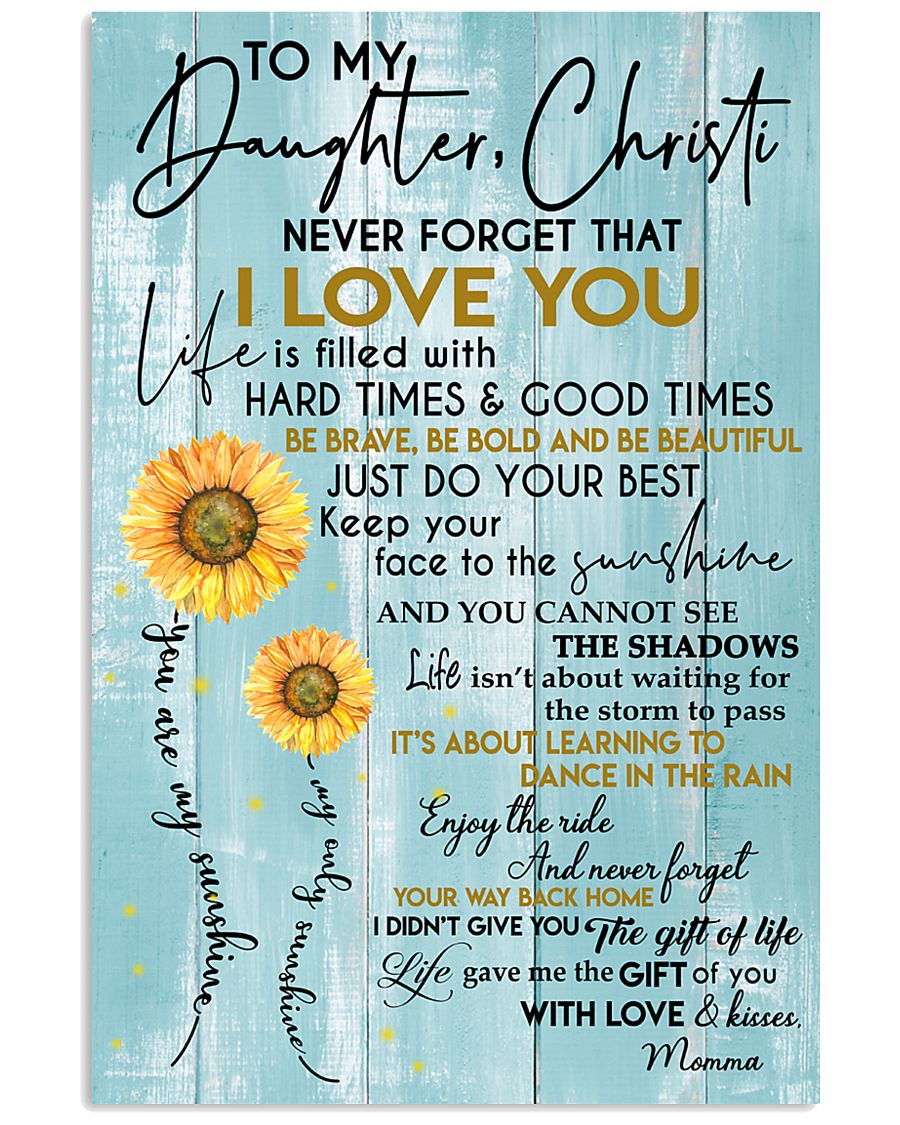 TO MY
Daughter, Christi
NEVER FORGET THAT
I LOVE YOU
Life is filled with
HARD TIMES & GOOD TIMES
BE BRAVE, BE BOLD AND BE BEAUTIFUL
JUST DO YOUR BEST
Keep your
face to the sunshine
AND YOU CANNOT SEE
THE SHADOWS
Life isn't about waiting for
the storm to pass
IT'S ABOUT LEARNING TO
DANCE IN THE RAIN
Enjoy the ride
And never forget
YOUR WAY BACK HOME
I DIDN'T GIVE YOU The gift of life
Life gave me the GIFT of you
WITH LOVE & kisses,
Momma
you are my sunshine
my only sunshine